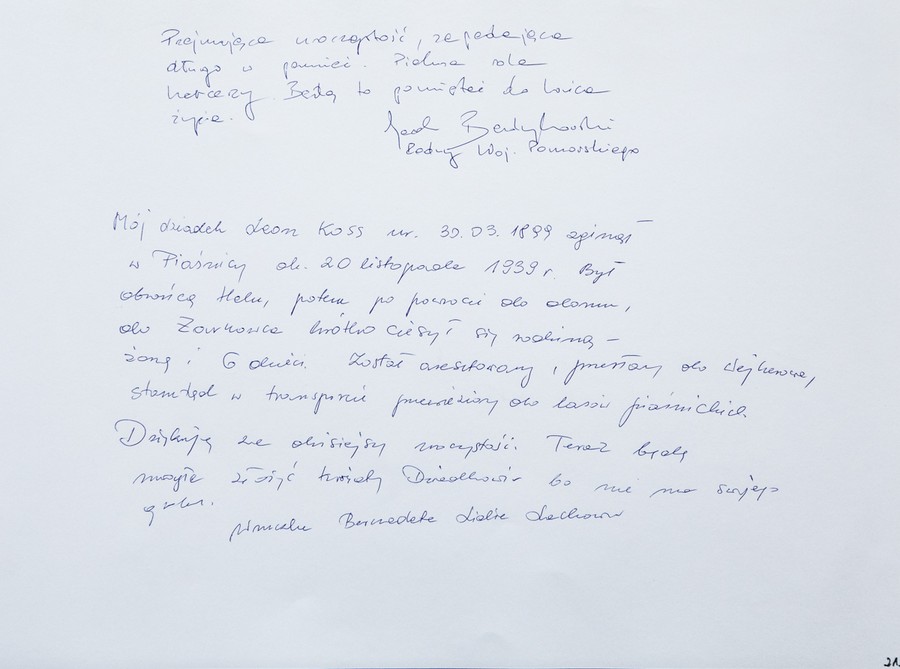 Przejmująca uroczystość, zapadająca
długo w pamięci. Piękna rola
harcerzy. Będę to pamiętać do końca
życia.
Radny Woj. Pomorskiego
Mój dziadek Leon Koss ur. 30.03.1899 zginął
w Piaśnicy ok. 20 listopada 1939 r. Był
obrońcą Helu, potem po powrocie do domu,
do Żarnowca krótko cieszył się rodziną –
żoną i 6 dzieci. Został aresztowany, przesłany do Wejherowa,
stamtąd w transporcie przewieziony do lasów piaśnickich.
Dziękuję za dzisiejszą uroczystość. Teraz będę
mogła złożyć kwiaty Dziadkowi bo nie ma swojego
grobu.
wnuczka Bernadeta Lidia
21.